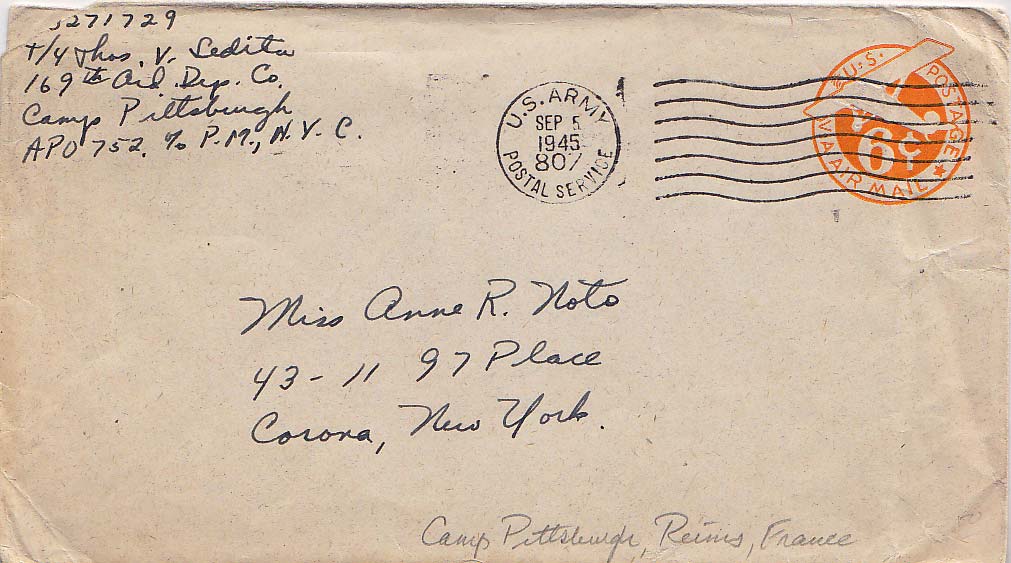 271729
T/4 Thos. V. Sedita
169th Ord. Dep. Co.
Camp Pittsburgh
APO 752, % P.M., N.Y.C.
U.S. ARMY
SEP 5
1945
807
POSTAL SERVICE
U.S. POSTAGE
6¢
VIA AIR MAIL
Miss Anne R. Noto
43-11 97 Place
Corona, New York.
Camp Pittsburgh, Reims, France